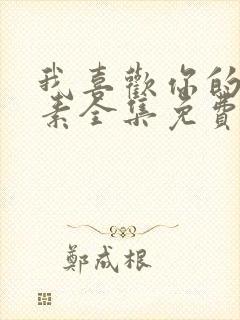 我喜歡你的
素全集免費
鄭成根